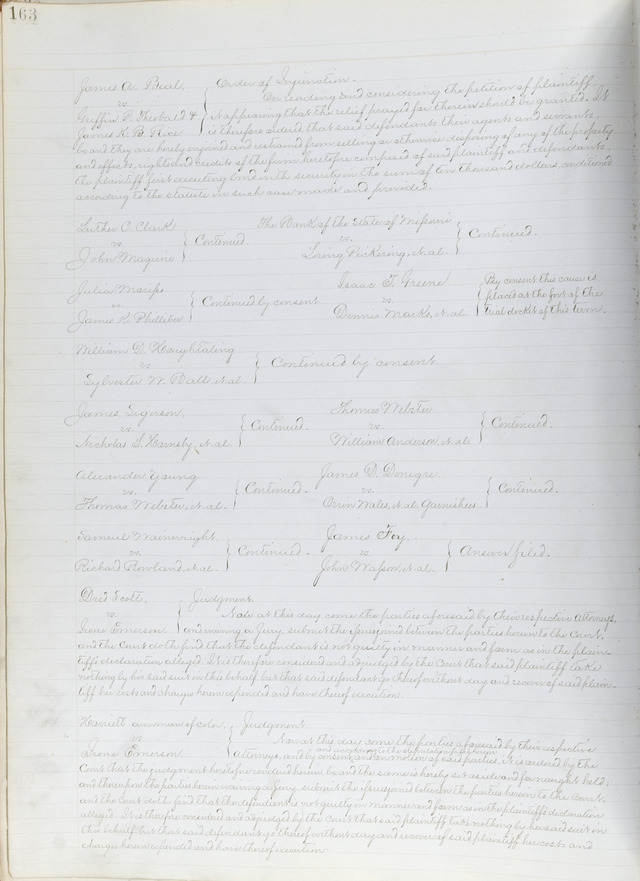 163
James A. Beal,
vs.
Griffin P. Theobald &
James K. B. Rice
Order of Injunction.
On reading and considering the petition of plaintiff,
it appearing that the relief prayed for therein should be granted. It
is therefore ordered, that said defendants their agents and servants,
be and they are hereby enjoined and restrained from selling or otherwise disposing of any of the property
and effects, rights and credits of the firm heretofore composed of said plaintiff and defendants,
the plaintiff first executing bond with security in the sum of ten thousand dollars, conditioned
according to the statute in such case made and provided.
Luther C. Clark
vs.
John Maguire
Continued.
The Bank of the State of Missouri
vs.
Loring Pickering, et al.
Continued.
Julia
vs.
James R. Philliber
Continued by consent
Isaac T. Greene
vs.
Dennis Marks, et al
By consent this cause is
placed at the foot of the
trial docket of this term.
William D. Houghtaling
vs.
Sylvester W. Ball, et al.
Continued by consent
James Sigerson,
vs.
Nicholas S. Hornsby, et al.
Continued.
Thomas Webster
vs.
William Anderson, et al.
Continued.
Alexander Young
vs.
Thomas Webster, et al.
Continued.
James D. Denegre.
vs.
Orrin Wales, et al. Garnishees.
Continued.
Samuel Wainwright.
vs.
Richard Rowland, et al.
Continued.
James Foy,
vs.
John Wasson, et al.
Answer filed.
Dred Scott.
vs.
Irene Emerson.
Judgment.
Now at this day come the parties aforesaid by their respective Attorneys,
and waiving a Jury, submit the issue joined between the parties herein to the Court.
and the Court doth find that the defendant is not guilty in manner and form as in the plain-
tiff's declaration alleged. It is therefore considered and adjudged by the Court that said plaintiff take
nothing by his said suit in this behalf but that said defendant go thereof without day and recover of said plain-
tiff her costs and charges herein expended and have thereof execution.
Harriett a woman of color,
vs.
Irene Emerson
Judgment
Now at this day come the parties aforesaid by their respective
attorneys, and by consent and on motion of said parties. It is ordered by the
and according to the stipulation filed herein
Court that the judgment heretofore rendered herein be and the same is hereby set aside and for naught held;
and thereupon the parties herein waiving a Jury, submit the issue joined between the parties herein to the Court.
and the Court doth find that the defendant is not guilty in manner and form as in the plaintiff's declaration
alleged. It is therefore considered and adjudged by the Court that said plaintiff take nothing by her said suit in
this behalf but that said defendant go thereof without day and recover of said plaintiff her costs and
charges herein expended and have thereof execution.